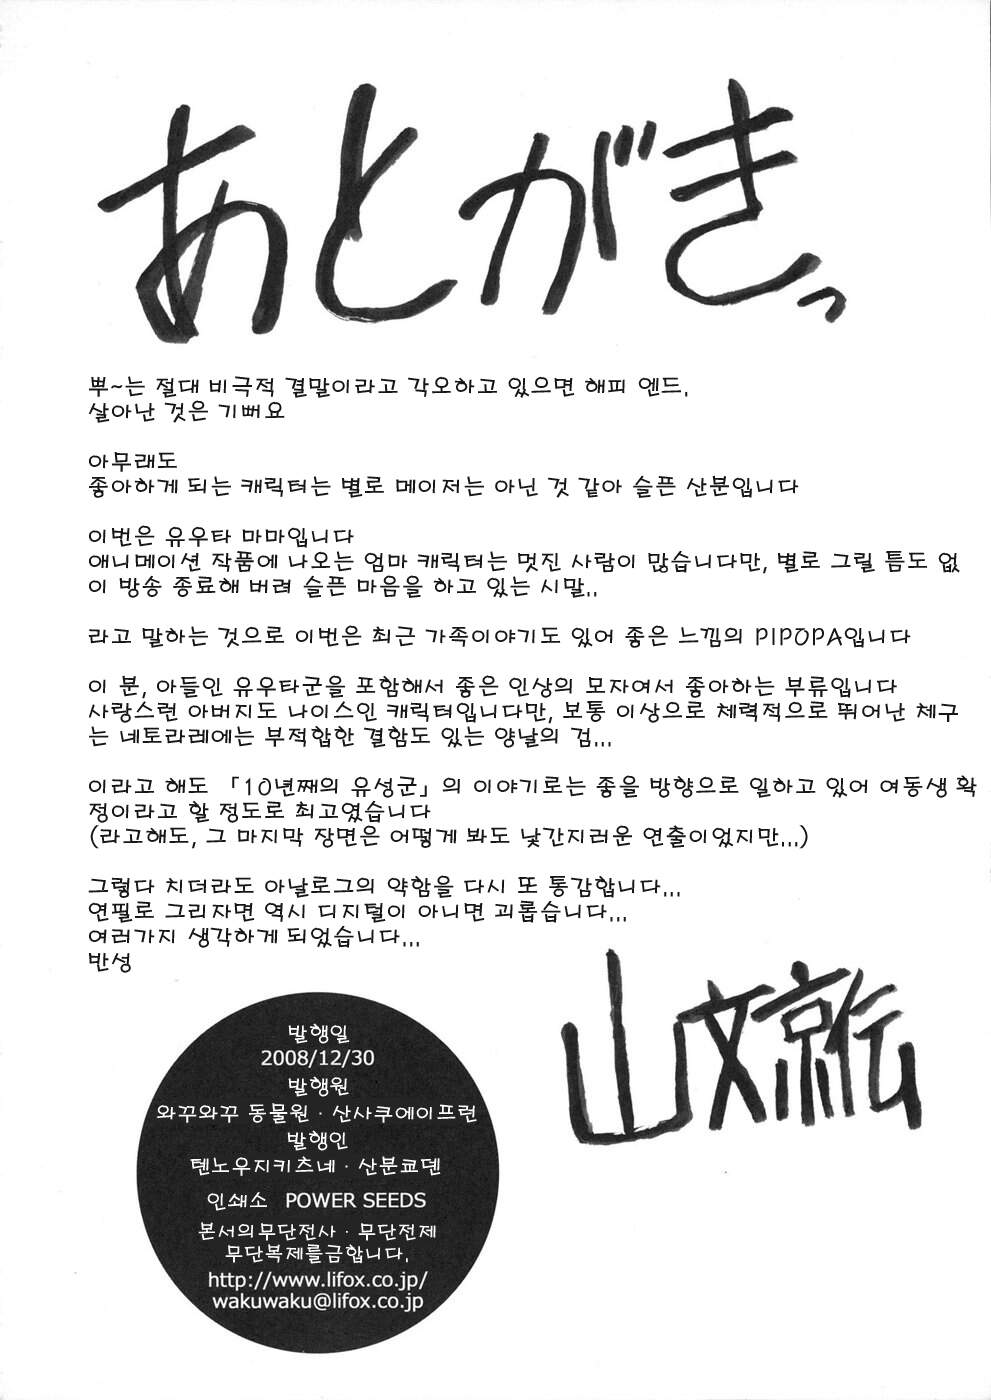 あとがきっ
뿌~는 절대 비극적 결말이라고 각오하고 있으면 해피 엔드.
살아난 것은 기뻐요
아무래도
좋아하게 되는 캐릭터는 별로 메이저는 아닌 것 같아 슬픈 산분입니다
이번은 유우타 마마입니다
애니메이션 작품에 나오는 엄마 캐릭터는 멋진 사람이 많습니다만, 별로 그릴 틈도 없
이 방송 종료해 버려 슬픈 마음을 하고 있는 시말..
라고 말하는 것으로 이번은 최근 가족이야기도 있어 좋은 느낌의 PIPOPA입니다
이 분, 아들인 유우타군을 포함해서 좋은 인상의 모자여서 좋아하는 부류입니다
사랑스런 아버지도 나이스인 캐릭터입니다만, 보통 이상으로 체력적으로 뛰어난 체구
는 네토라레에는 부적합한 결함도 있는 양날의 검...
이라고 해도 「10년째의 유성군」의 이야기로는 좋을 방향으로 일하고 있어 여동생 확
정이라고 할 정도로 최고였습니다
(라고해도, 그 마지막 장면은 어떻게 봐도 낯간지러운 연출이었지만...)
그렇다 치더라도 아날로그의 약함을 다시 또 통감합니다...
연필로 그리자면 역시 디지털이 아니면 괴롭습니다...
여러가지 생각하게 되었습니다...
반성
山文京伝
발행일
2008/12/30
발행원
와꾸와꾸 동물원·산사쿠에이프런
발행인
텐노우지키츠네·산분쿄덴
인쇄소 POWER SEEDS
본서의무단전사·무단전제
무단복제를금합니다.
http://www.lifox.co.jp/
wakuwaku@lifox.co.jp